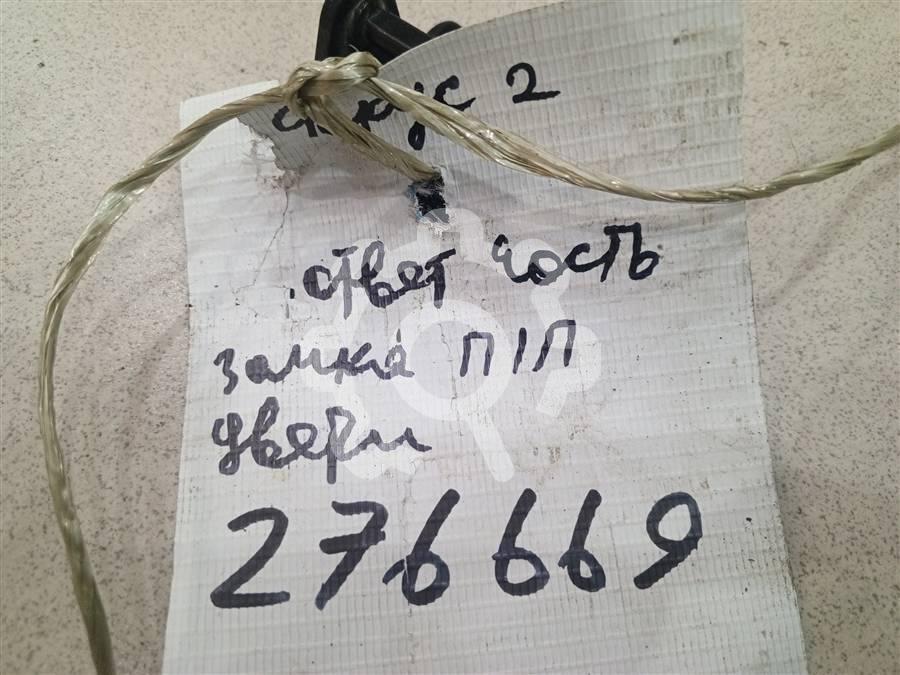 фокус 2
ответ часть
замка П/П
двери
276669